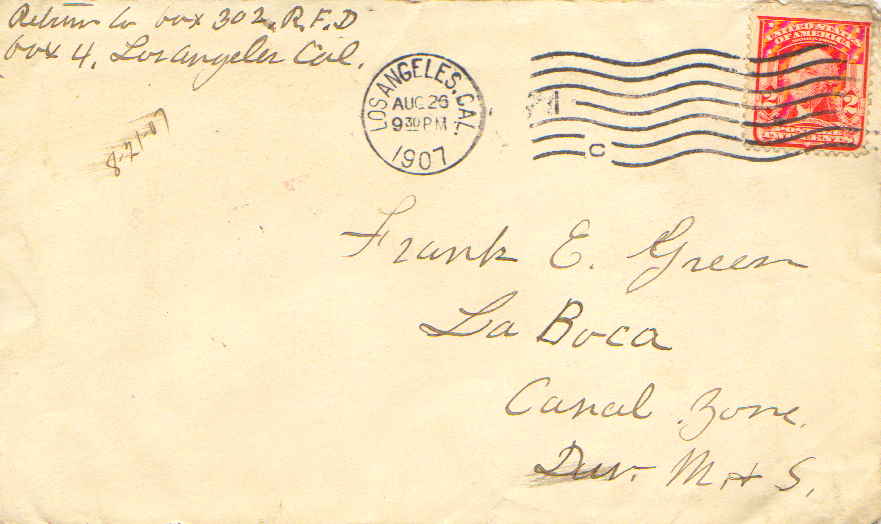 Return to box 302. R.F.D
box 4, Los angeles Cal.
LOS ANGELES, CAL.
AUG 26
9 30 PM
1907
C
UNITED STATES
OF AMERICA
2 2
8-21-07
Frank E. Green
La Boca
Canal Zone.
M & S.